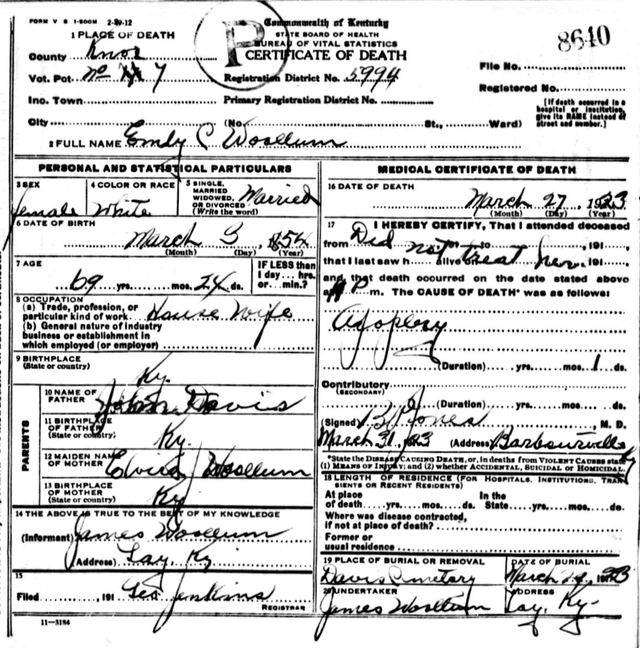 FORM V S 1-500M 2-29-12
Commonwealth of Kentucky
STATE BOARD OF HEALTH
BUREAU OF VITAL STATISTICS
CERTIFICATE OF DEATH
P
8640
1 PLACE OF DEATH
County Knox
Vot. Pct No 7
Inc. Town
City
Registration District No. 5994
Primary Registration District No.
(No. St., Ward)
File No.
Registered No.
[If death occurred in a hospital or institution, give its NAME instead of street and number.]
2 FULL NAME Emily C Woollum
PERSONAL AND STATISTICAL PARTICULARS
3 SEX
female
4 COLOR OR RACE
White
5 SINGLE, MARRIED WIDOWED, OR DIVORCED (Write the word)
Married
6 DATE OF BIRTH
March 3, 1854
(Month) (Day) (Year)
7 AGE
69 yrs. mos. 24 ds.
IF LESS than 1 day ... hrs. or ... min.?
8 OCCUPATION
(a) Trade, profession, or particular kind of work House Wife
(b) General nature of industry business or establishment in which employed (or employer)
9 BIRTHPLACE
(State or country)
Ky.
PARENTS
10 NAME OF FATHER
John Davis
11 BIRTHPLACE OF FATHER
(State or country)
Ky.
12 MAIDEN NAME OF MOTHER
Woollum
13 BIRTHPLACE OF MOTHER
(State or country)
Ky
14 THE ABOVE IS TRUE TO THE BEST OF MY KNOWLEDGE
(Informant) James Woollum
(Address) Lay, Ky.
15
Filed , 191 Geo Jenkins
REGISTRAR
11-3184
MEDICAL CERTIFICATE OF DEATH
16 DATE OF DEATH
March 27, 1923
(Month) (Day) (Year)
17 I HEREBY CERTIFY, That I attended deceased
from Did not to treat her, 191
that I last saw h alive on , 191
and that death occurred on the date stated above
at P m. The CAUSE OF DEATH* was as follows:
(Duration) yrs. mos. 1 ds.
Contributory
(SECONDARY)
(Duration) yrs. mos. ds.
(Signed) Jones, M. D.
March 31, 1923 (Address) Barbourville Ky
*State the DISEASE CAUSING DEATH, or, in deaths from VIOLENT CAUSES state (1) MEANS OF INJURY; and (2) whether ACCIDENTAL, SUICIDAL or HOMICIDAL.
18 LENGTH OF RESIDENCE (FOR HOSPITALS, INSTITUTIONS, TRANSIENTS OR RECENT RESIDENTS)
At place of death yrs. mos. ds. In the State yrs. mos. ds.
Where was disease contracted, if not at place of death?
Former or usual residence
19 PLACE OF BURIAL OR REMOVAL
Davis Cemetary
DATE OF BURIAL
March 1923
20 UNDERTAKER
James Woollum Lay, Ky.